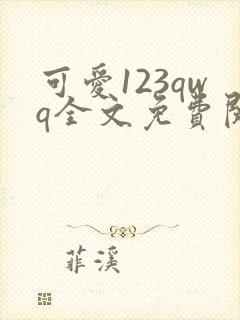 可愛123qw
q全文免費閱
菲溪